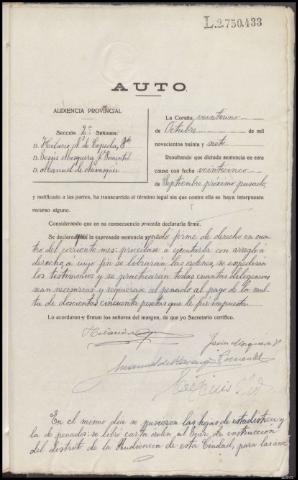 L.2.750.433
AUTO.
AUDIENCIA PROVINCIAL
Sección 2ª Señores:
D.
D. Jesús Noguera
D. Manuel de
La Coruña, veintiuno
de Octubre de mil
novecientos treinta y siete
Resultando que dictada sentencia en esta
causa con fecha veinticinco
de Septiembre próximo pasado
y notificada a las partes, ha transcurrido el término legal sin que contra ella se haya interpuesto
recurso alguno.
Considerando que en su consecuencia procede declararla firme.
Se declara la expresada sentencia firme de derecho en
del corriente mes; procédase a ejecutarla con arreglo a
derecho a cuyo fin se librarán las órdenes, se expedirán
los testimonios y se practicarán todas cuantas diligencias
sean necesarias y requiérase al penado al pago de la mul
ta de doscientas cincuenta pesetas que le fué impuesta
Lo acordaron y firman los señores del margen, de que yo Secretario certifico.
En el mismo día se pusieron las hojas de estadística y
la de penados; se libró carta orden al Juez de instrucción
del distrito de la Audiencia de esta Ciudad, para